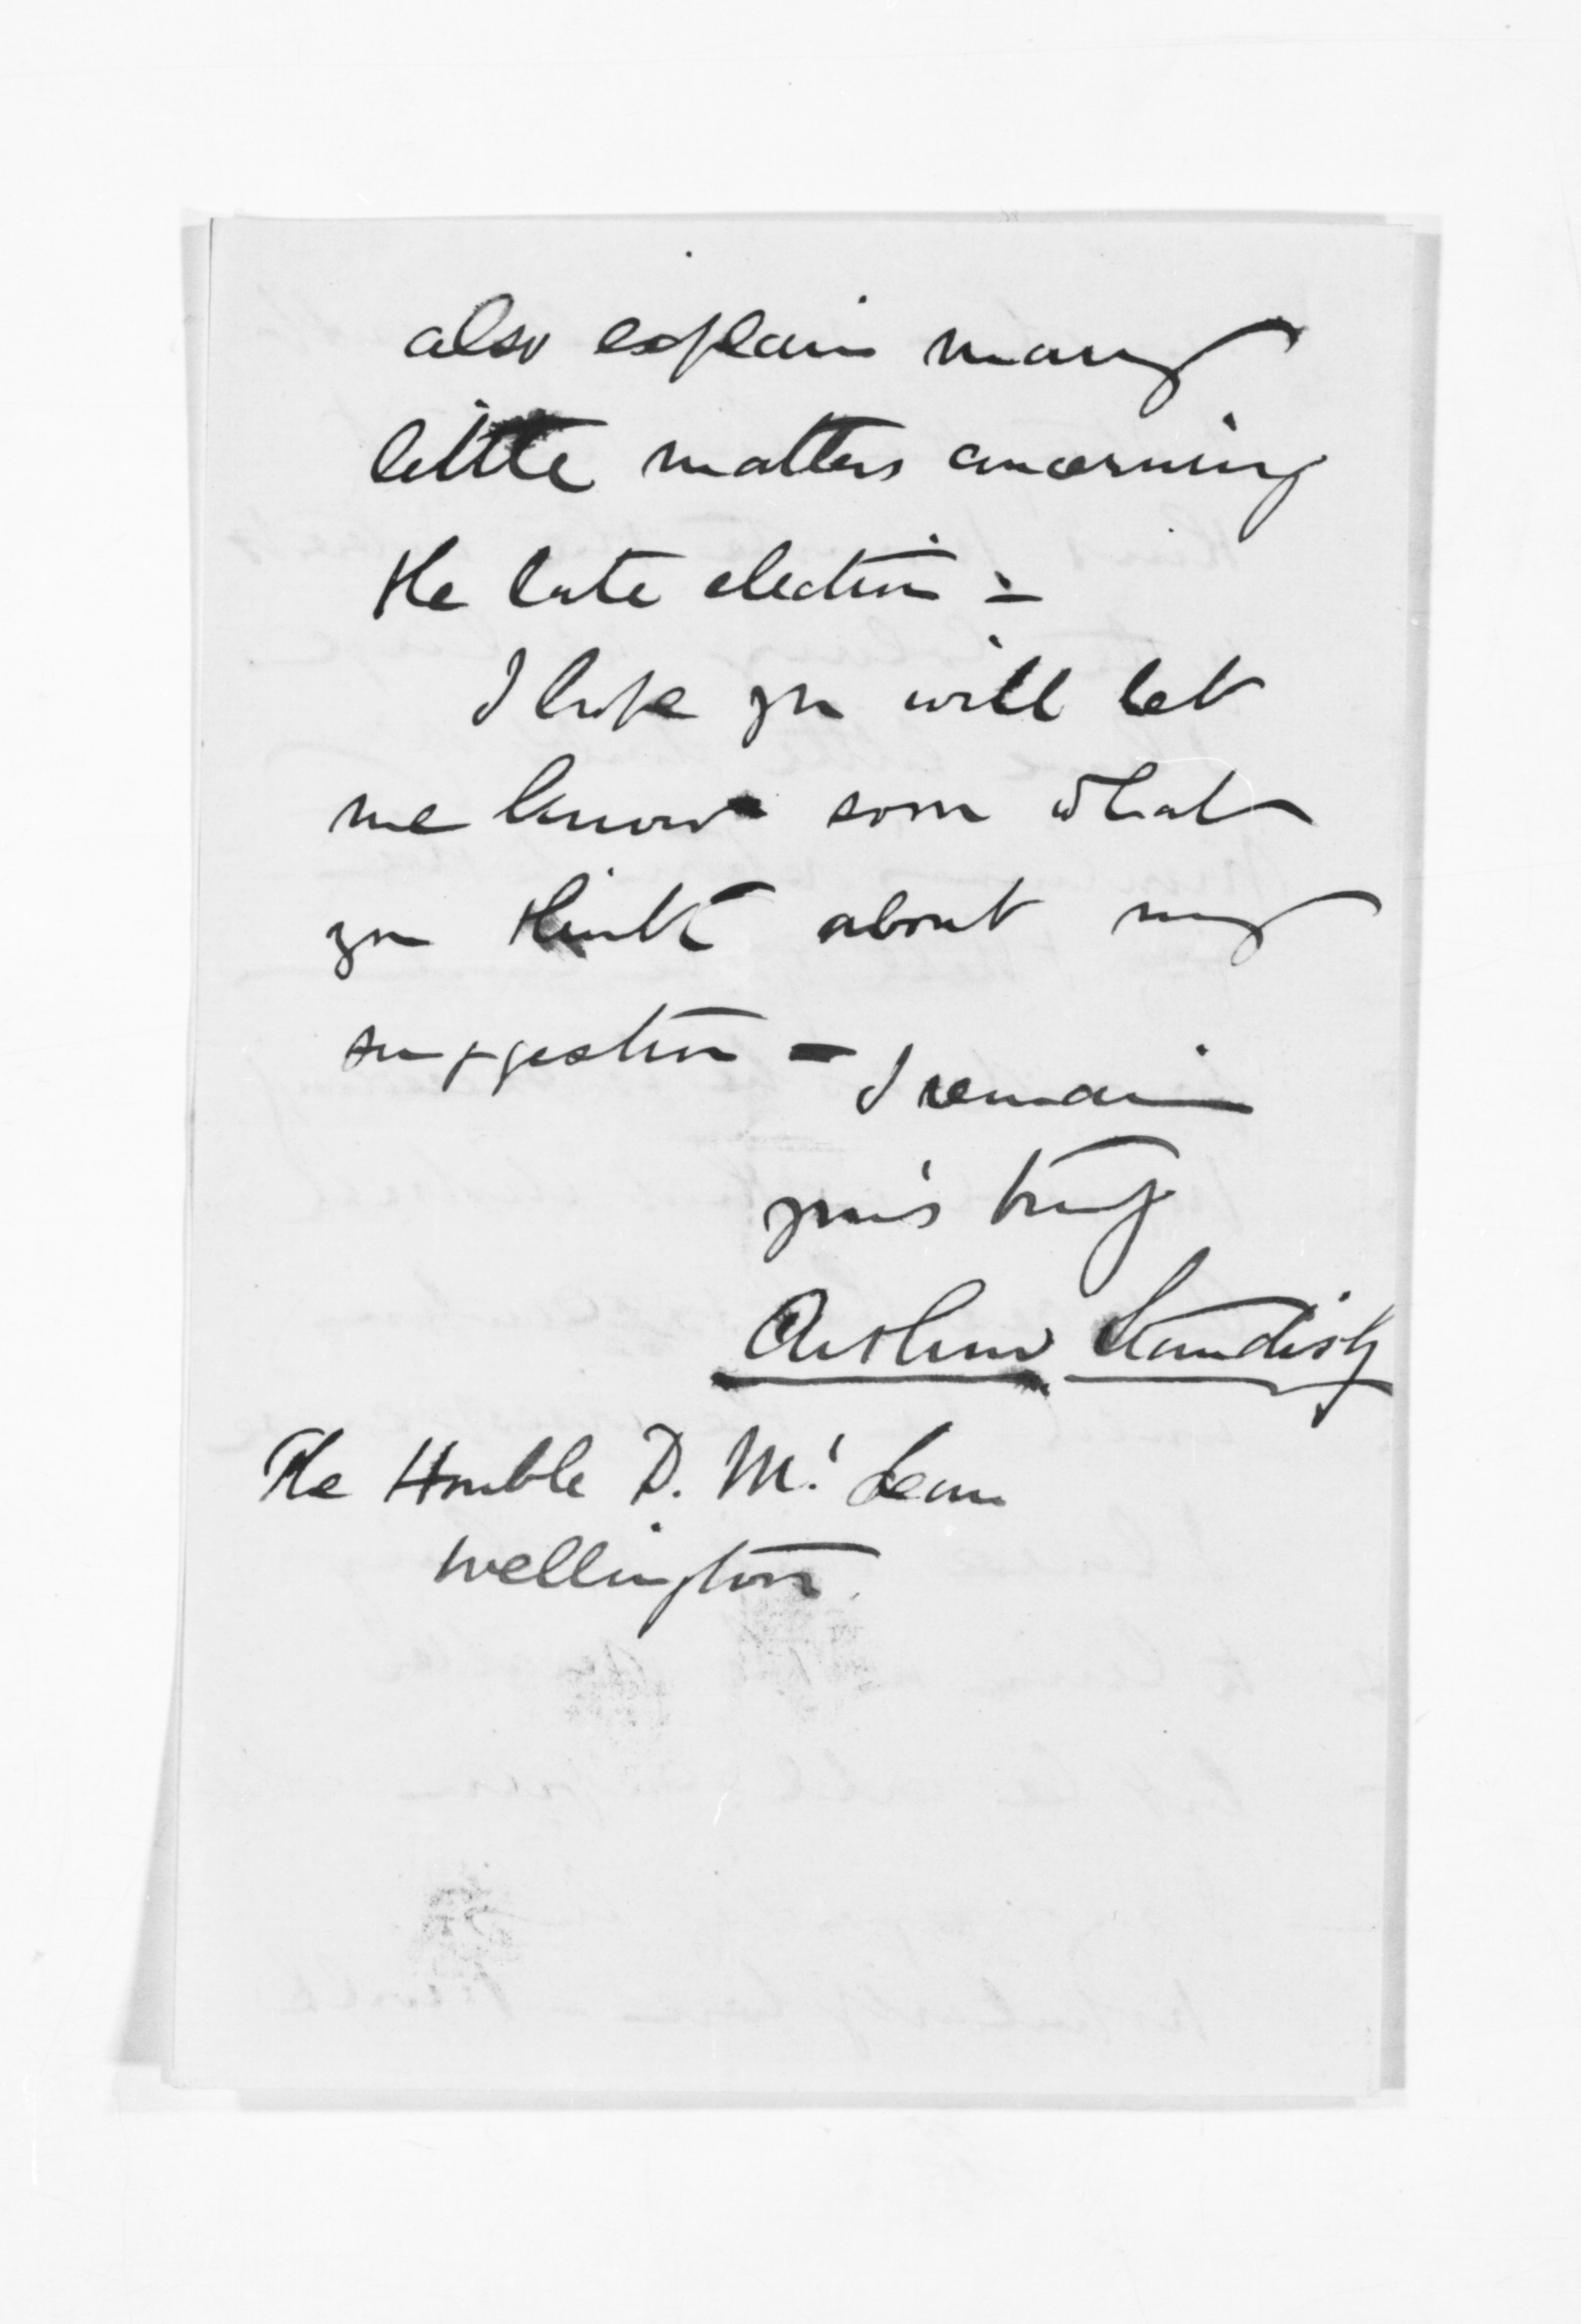 also explain many
little matters concerning
the late election -
I hope you will let
me know soon what
you think about my
suggestion - I remain
yours truly
Arthur Standish
The Honble D. Mc Lean
Wellington